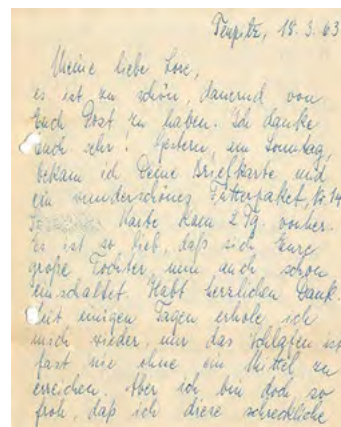 Teupitz, 18. 3. 63
Meine liebe Lore,
es ist zu schön, dauernd von
Euch Post zu haben. Ich danke
Euch sehr! Gestern, am Sonntag,
bekam ich Deine Briefkarte und
ein wunderschönes Futterpaket, Nr. 14
Karte kam 2 Tg. vorher.
Es ist so lieb, daß sich Eure
große Tochter nun auch schon
einschaltet. Habt herzlichen Dank.
Seit einigen Tagen erhole ich
mich wieder, nur das Schlafen ist
fast nie ohne ein Mittel zu
erreichen. Aber ich bin doch so
froh, daß ich diese schreckliche